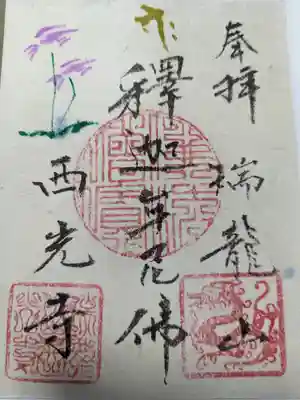 奉拝
瑞龍山
釋迦牟尼佛
西光寺